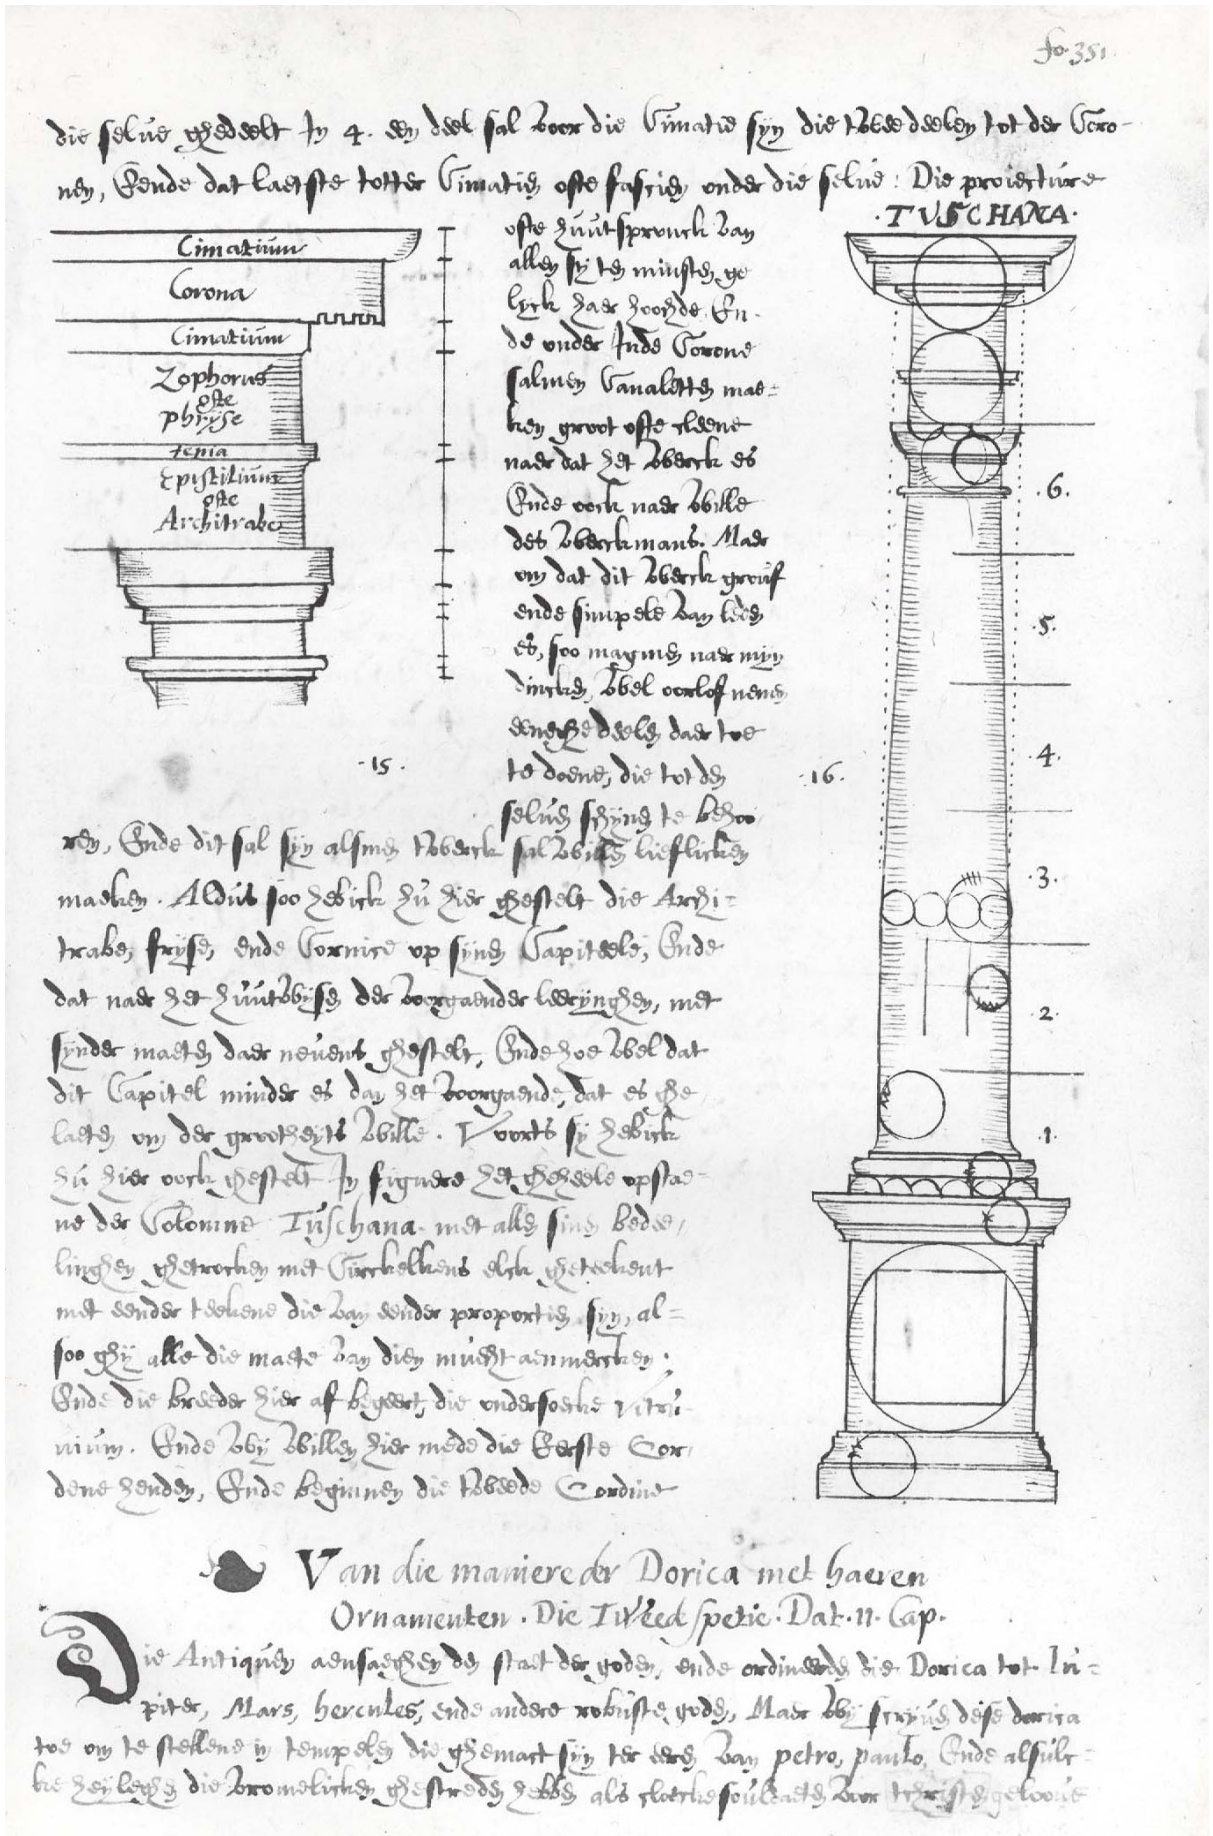 fo. 351
die selue ghedeelt In 4. een deel sal voor die Cimatie syn die twee deelen tot der Coro-
nen, Eende dat laetste totter Cimatien ofte fascien onder die selue: Die proiecture
.TVSCHANA.
ofte huutspronck van
allen sy ten minsten ge
lyck haer hoochde. En-
de onder Inde Corone
salmen Canaletten mae-
ken groot ofte cleene
naer dat het werck es
Ende oock naer wille
des werckmans. Maer
om dat dit werck grouf
ende simpele van leden
es, soo machmen naer myn
duncken, wel oorlof nemen
eeneghe deelen daer toe
te doene, die tot den
seluen schynen te behoo
ren, Ende dit sal syn alsmen twerck sal willen lieflicken
maeken. Aldus soo hebick hu hier ghestelt die Archi-
trabe, fryse, ende Cornice op synen Capiteele, Ende
dat naer het huutwysen der voorgaender leerynghen, met
synder maeten daer neuens ghestelt, Ende hoe wel dat
dit Capitel minder es dan het voorgaende, dat es ghe
laeten om der grootheyts wille. Voorts sy hebick
hu hier oock ghestelt In figuere het gheheele opstae-
ne der Colomne Tuschana. met allen sinen bedee-
linghen ghetrocken met Circkelkens elck gheteekent
met eender teekene die van eender proportien syn, al-
soo ghy alle die maete van dien mueght aenmercken.
Ende die breeder hier af begeert, die ondersoecke Vitru-
uium. Ende wy willen hier mede die Eerste Oor-
dene henden, Ende beginnen die tweede Oordine
Cimatium
Corona
Cimatium
Zophorus
ofte
phryse
tenia
Epistilium
ofte
Architrabe
.15.
.16.
.6.
.5.
.4.
.3.
.2.
.1.
Van die maniere der Dorica met haeren
Ornamenten. Die Tweede spetie. Dat .11. Cap.
Die Antiquen aensaeghen den staet der goden, ende ordineerden die Dorica tot Iu-
piter, Mars, hercules, ende andere robuste goden, Maer wy scryuen dese dorica
toe om te stellene in tempelen die ghemact syn ter eeren van petro, paulo, Ende alsulc-
ke heyleghen die vromelicken ghestreden hebben als cloecke souldaeten voor tchristen geloove